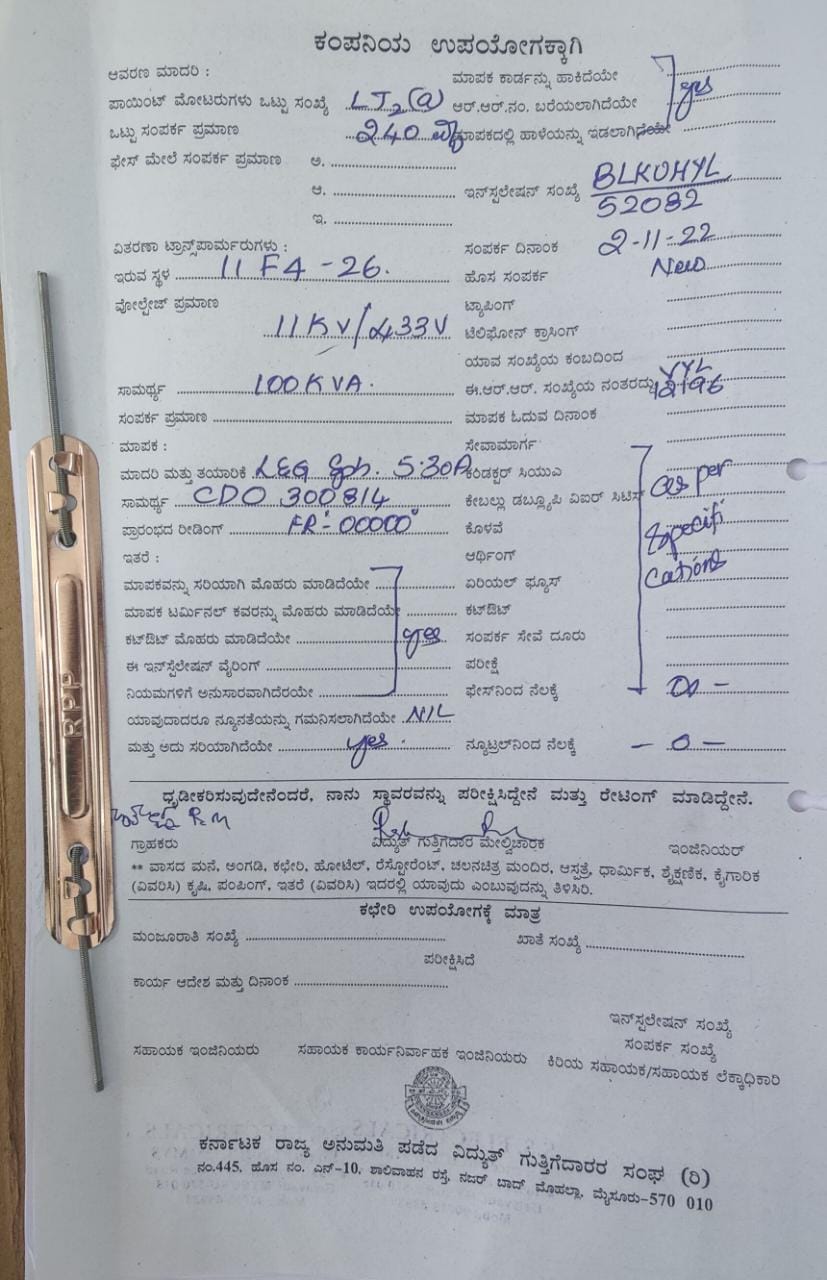 ಕಂಪನಿಯ ಉಪಯೋಗಕ್ಕಾಗಿ
ಆವರಣ ಮಾದರಿ : ಮಾಪಕ ಕಾರ್ಡನ್ನು ಹಾಕಿದೆಯೇ
ಪಾಯಿಂಟ್ ಮೋಟರುಗಳು ಒಟ್ಟು ಸಂಖ್ಯೆ LT2(a) ಆರ್.ಆರ್.ನಂ. ಬರೆಯಲಾಗಿದೆಯೇ yes
ಒಟ್ಟು ಸಂಪರ್ಕ ಪ್ರಮಾಣ 240 ಮಾಪಕದಲ್ಲಿ ಹಾಳೆಯನ್ನು ಇಡಲಾಗಿದೆಯೇ
ಫೇಸ್ ಮೇಲೆ ಸಂಪರ್ಕ ಪ್ರಮಾಣ ಅ.
ಆ. ಇನ್‌ಸ್ಟಲೇಷನ್ ಸಂಖ್ಯೆ BLKUHYL
52082
ಇ.
ವಿತರಣಾ ಟ್ರಾನ್ಸ್‌ಪಾರ್ಮರುಗಳು : ಸಂಪರ್ಕ ದಿನಾಂಕ 2-11-22
ಇರುವ ಸ್ಥಳ 11 F4 -26. ಹೊಸ ಸಂಪರ್ಕ New
ವೋಲ್ಟೇಜ್ ಪ್ರಮಾಣ ಟ್ಯಾಪಿಂಗ್
11KV/433V ಟೆಲಿಫೋನ್ ಕ್ರಾಸಿಂಗ್
ಯಾವ ಸಂಖ್ಯೆಯ ಕಂಬದಿಂದ
ಸಾಮರ್ಥ್ಯ 100KVA. ಈ.ಆರ್.ಆರ್. ಸಂಖ್ಯೆಯ ನಂತರದ್ದು
ಸಂಪರ್ಕ ಪ್ರಮಾಣ ಮಾಪಕ ಓದುವ ದಿನಾಂಕ
ಮಾಪಕ : ಸೇವಾಮಾರ್ಗ
ಮಾದರಿ ಮತ್ತು ತಯಾರಿಕೆ L&G Sph. 5-30A ಕಂಡಕ್ಟರ್ ಸಿಯುಎ
ಸಾಮರ್ಥ್ಯ CDO 300814 ಕೇಬಲ್ಲು ಡಬ್ಲ್ಯೂಪಿ ವಿಐರ್ ಸಿಟಿಸ್ as per
ಪ್ರಾರಂಭದ ರೀಡಿಂಗ್ FR:- 00000 ಕೊಳವೆ specifi
ಇತರೆ : ಆರ್ಥಿಂಗ್ cations
ಮಾಪಕವನ್ನು ಸರಿಯಾಗಿ ಮೊಹರು ಮಾಡಿದೆಯೇ ಏರಿಯಲ್ ಫ್ಯೂಸ್
ಮಾಪಕ ಟರ್ಮಿನಲ್ ಕವರನ್ನು ಮೊಹರು ಮಾಡಿದೆಯೇ ಕಟ್‌ಔಟ್
ಕಟ್‌ಔಟ್ ಮೊಹರು ಮಾಡಿದೆಯೇ yes ಸಂಪರ್ಕ ಸೇವೆ ದೂರು
ಈ ಇನ್‌ಸ್ಟೆಲೇಷನ್ ವೈರಿಂಗ್ ಪರೀಕ್ಷೆ
ನಿಯಮಗಳಿಗೆ ಅನುಸಾರವಾಗಿದೆರಯೇ ಫೇಸ್‌ನಿಂದ ನೆಲಕ್ಕೆ
ಯಾವುದಾದರೂ ನ್ಯೂನತೆಯನ್ನು ಗಮನಿಸಲಾಗಿದೆಯೇ NIL
ಮತ್ತು ಅದು ಸರಿಯಾಗಿದೆಯೇ yes. ನ್ಯೂಟ್ರಲ್‌ನಿಂದ ನೆಲಕ್ಕೆ - 0 -
ಧೃಡೀಕರಿಸುವುದೇನೆಂದರೆ, ನಾನು ಸ್ಥಾವರವನ್ನು ಪರೀಕ್ಷಿಸಿದ್ದೇನೆ ಮತ್ತು ರೇಟಿಂಗ್ ಮಾಡಿದ್ದೇನೆ.
ಗ್ರಾಹಕರು ವಿದ್ಯುತ್ ಗುತ್ತಿಗೆದಾರ ಮೇಲ್ವಿಚಾರಕ ಇಂಜಿನಿಯರ್
** ವಾಸದ ಮನೆ, ಅಂಗಡಿ, ಕಛೇರಿ, ಹೋಟೆಲ್, ರೆಸ್ಟೋರೆಂಟ್, ಚಲನಚಿತ್ರ ಮಂದಿರ, ಆಸ್ಪತ್ರೆ, ಧಾರ್ಮಿಕ, ಶೈಕ್ಷಣಿಕ, ಕೈಗಾರಿಕ
(ವಿವರಿಸಿ) ಕೃಷಿ, ಪಂಪಿಂಗ್, ಇತರೆ (ವಿವರಿಸಿ) ಇದರಲ್ಲಿ ಯಾವುದು ಎಂಬುವುದನ್ನು ತಿಳಿಸಿರಿ.
ಕಛೇರಿ ಉಪಯೋಗಕ್ಕೆ ಮಾತ್ರ
ಮಂಜೂರಾತಿ ಸಂಖ್ಯೆ ಖಾತೆ ಸಂಖ್ಯೆ
ಪರೀಕ್ಷಿಸಿದೆ
ಕಾರ್ಯ ಆದೇಶ ಮತ್ತು ದಿನಾಂಕ
ಇನ್‌ಸ್ಟಲೇಷನ್ ಸಂಖ್ಯೆ
ಸಂಪರ್ಕ ಸಂಖ್ಯೆ
ಸಹಾಯಕ ಇಂಜಿನಿಯರು ಸಹಾಯಕ ಕಾರ್ಯನಿರ್ವಾಹಕ ಇಂಜಿನಿಯರು ಕಿರಿಯ ಸಹಾಯಕ/ಸಹಾಯಕ ಲೆಕ್ಕಾಧಿಕಾರಿ
ಕರ್ನಾಟಕ ರಾಜ್ಯ ಅನುಮತಿ ಪಡೆದ ವಿದ್ಯುತ್ ಗುತ್ತಿಗೆದಾರರ ಸಂಘ (ರಿ)
ನಂ.445, ಹೊಸ ನಂ. ಎನ್-10, ಶಾಲಿವಾಹನ ರಸ್ತೆ, ನಜರ್ ಬಾದ್ ಮೊಹಲ್ಲಾ, ಮೈಸೂರು-570 010
RPP